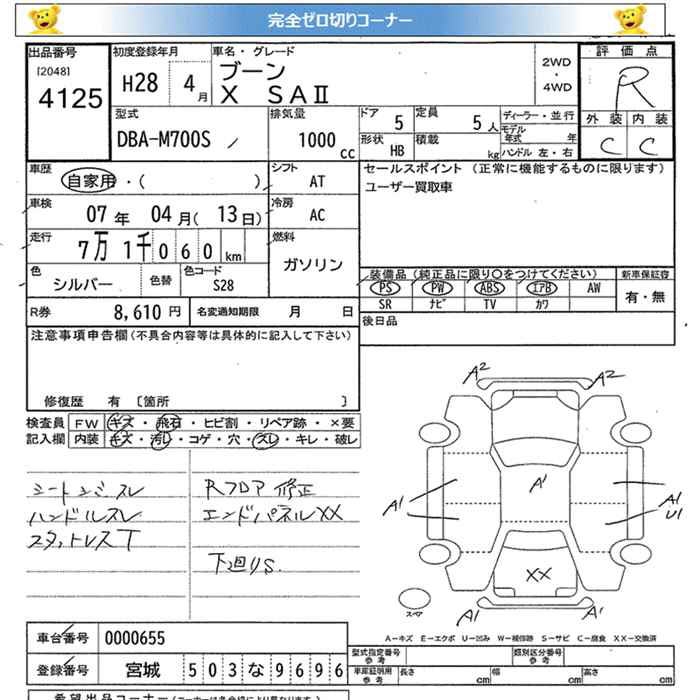 完全ゼロ切りコーナー
出品番号
[2048]
4125
初度登録年月
H28 4月
車名・グレード
ブーン
X SAⅡ
2WD
・
4WD
評価点
R
外装 内装
C C
型式
DBA-M700S
排気量
1000 cc
ドア 5
定員 5人
形状 HB
積載 kg
ディーラー・並行
モデル年式 年
ハンドル 左・右
車歴
自家用・( )
シフト
AT
車検
07年 04月( 13日)
冷房
AC
走行
7万 1千 0 6 0 km
燃料
ガソリン
色
シルバー
色替
色コード
S28
R券 8,610円
名変通知期限 月 日
セールスポイント (正常に機能するものに限ります)
ユーザー買取車
装備品(純正品に限り〇をつけてください)
新車保証書
PS PW ABS エアB AW
SR ナビ TV カワ
有・無
後日品
注意事項申告欄(不具合内容等は具体的に記入して下さい)
修復歴 有 [箇所 ]
検査員 FW キズ・飛石・ヒビ割・リペア跡・×要
記入欄 内装 キズ・汚レ・コゲ・穴・スレ・キレ・破レ
シートシミスレ
ハンドルスレ
スタットレスT
Rフロア修正
エンドパネルXX
下廻りS.
A2 A2
A1
A1
A1
U1
XX
A1 A1
スペア
A－キズ E－エクボ U－凹み W－補修跡 S－サビ C－腐食 XX－交換済
車台番号 0000655
登録番号 宮城 503な9696
型式指定番号 参考
類別区分番号 参考
車庫証明用 参考
長さ cm
幅 cm
高さ cm
希望出品コーナー